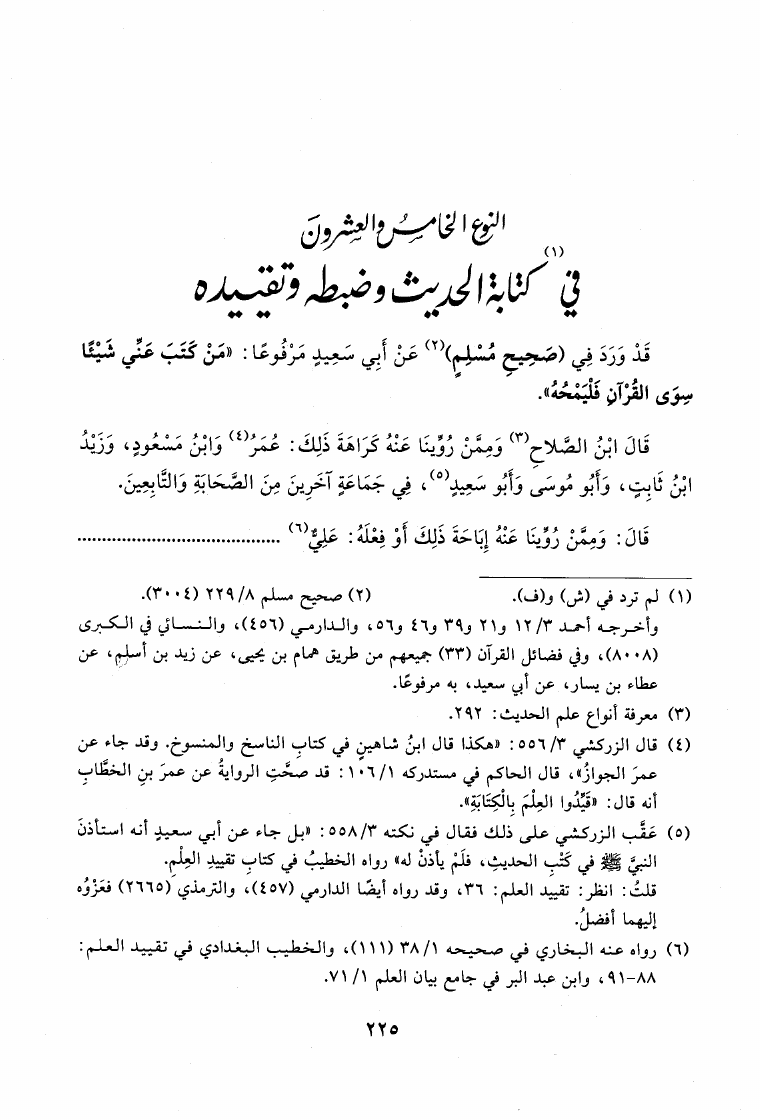 النوع الخامس والعشرون
في كتابة الحديث وضبطه وتقييده (١)
قَدْ وَرَدَ فِي (صَحِيحِ مُسْلِمٍ)(٢) عَنْ أَبِي سَعِيدٍ مَرْفُوعًا: «مَنْ كَتَبَ عَنِّي شَيْئًا
سِوَى القُرْآنِ فَلْيَمْحُهُ».
قَالَ ابْنُ الصَّلاحِ(٣) وَمِمَّنْ رُوِّينَا عَنْهُ كَرَاهَةَ ذَلِكَ: عُمَرُ(٤) وَابْنُ مَسْعُودٍ، وَزَيْدُ
ابْنُ ثَابِتٍ، وَأَبُو مُوسَى وَأَبُو سَعِيدٍ(٥)، فِي جَمَاعَةٍ آخَرِينَ مِنَ الصَّحَابَةِ وَالتَّابِعِينَ.
قَالَ: وَمِمَّنْ رُوِّينَا عَنْهُ إِبَاحَةَ ذَلِكَ أَوْ فِعْلَهُ: عَلِيٌّ(٦) ........................................
(١) لم ترد في (ش) و(ف). (٢) صحيح مسلم ٨/ ٢٢٩ (٣٠٠٤).
وأخرجه أحمد ٣/ ١٢ و٢١ و٣٩ و٤٦ و٥٦، والدارمي (٤٥٦)، والنسائي في الكبرى
(٨٠٠٨)، وفي فضائل القرآن (٣٣) جميعهم من طريق همام بن يحيى، عن زيد بن أسلم، عن
عطاء بن يسار، عن أبي سعيد، به مرفوعًا.
(٣) معرفة أنواع علم الحديث: ٢٩٢.
(٤) قال الزركشي ٣/ ٥٥٦: «هكذا قال ابنُ شاهينٍ في كتابِ الناسخِ والمنسوخِ. وقد جاء عن
عمرَ الجوازُ»، قال الحاكم في مستدركه ١/ ١٠٦: قد صحَّتِ الروايةُ عن عمرَ بنِ الخطَّابِ
أنه قال: «قَيِّدُوا العِلْمَ بِالْكِتَابَةِ».
(٥) عَقَّب الزركشي على ذلك فقال في نكته ٣/ ٥٥٨: «بل جاء عن أبي سعيدٍ أنه استأذنَ
النبيَّ ﷺ في كَتْبِ الحديثِ، فلَمْ يأذنْ له» رواه الخطيبُ في كتابِ تقييدِ العِلْمِ.
قلتُ: انظر: تقييد العلم: ٣٦، وقد رواه أيضًا الدارمي (٤٥٧)، والترمذي (٢٦٦٥) فعَزْوُه
إليهما أفضلُ.
(٦) رواه عنه البخاري في صحيحه ١/ ٣٨ (١١١)، والخطيب البغدادي في تقييد العلم:
٨٨-٩١، وابن عبد البر في جامع بيان العلم ١/ ٧١.
٢٢٥